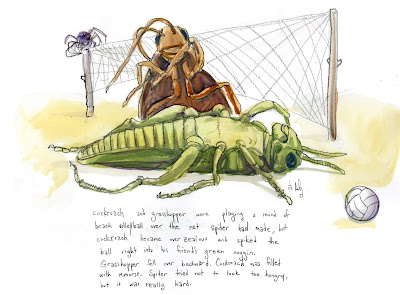 cockroach and grasshopper were playing a round of
beach volleyball over the net spider had made, but
cockroach became overzealous and spiked the
ball right into his friend's green noggin.
Grasshopper fell over backward. Cockroach was filled
with remorse. Spider tried not to look too hungry,
but it was really hard.